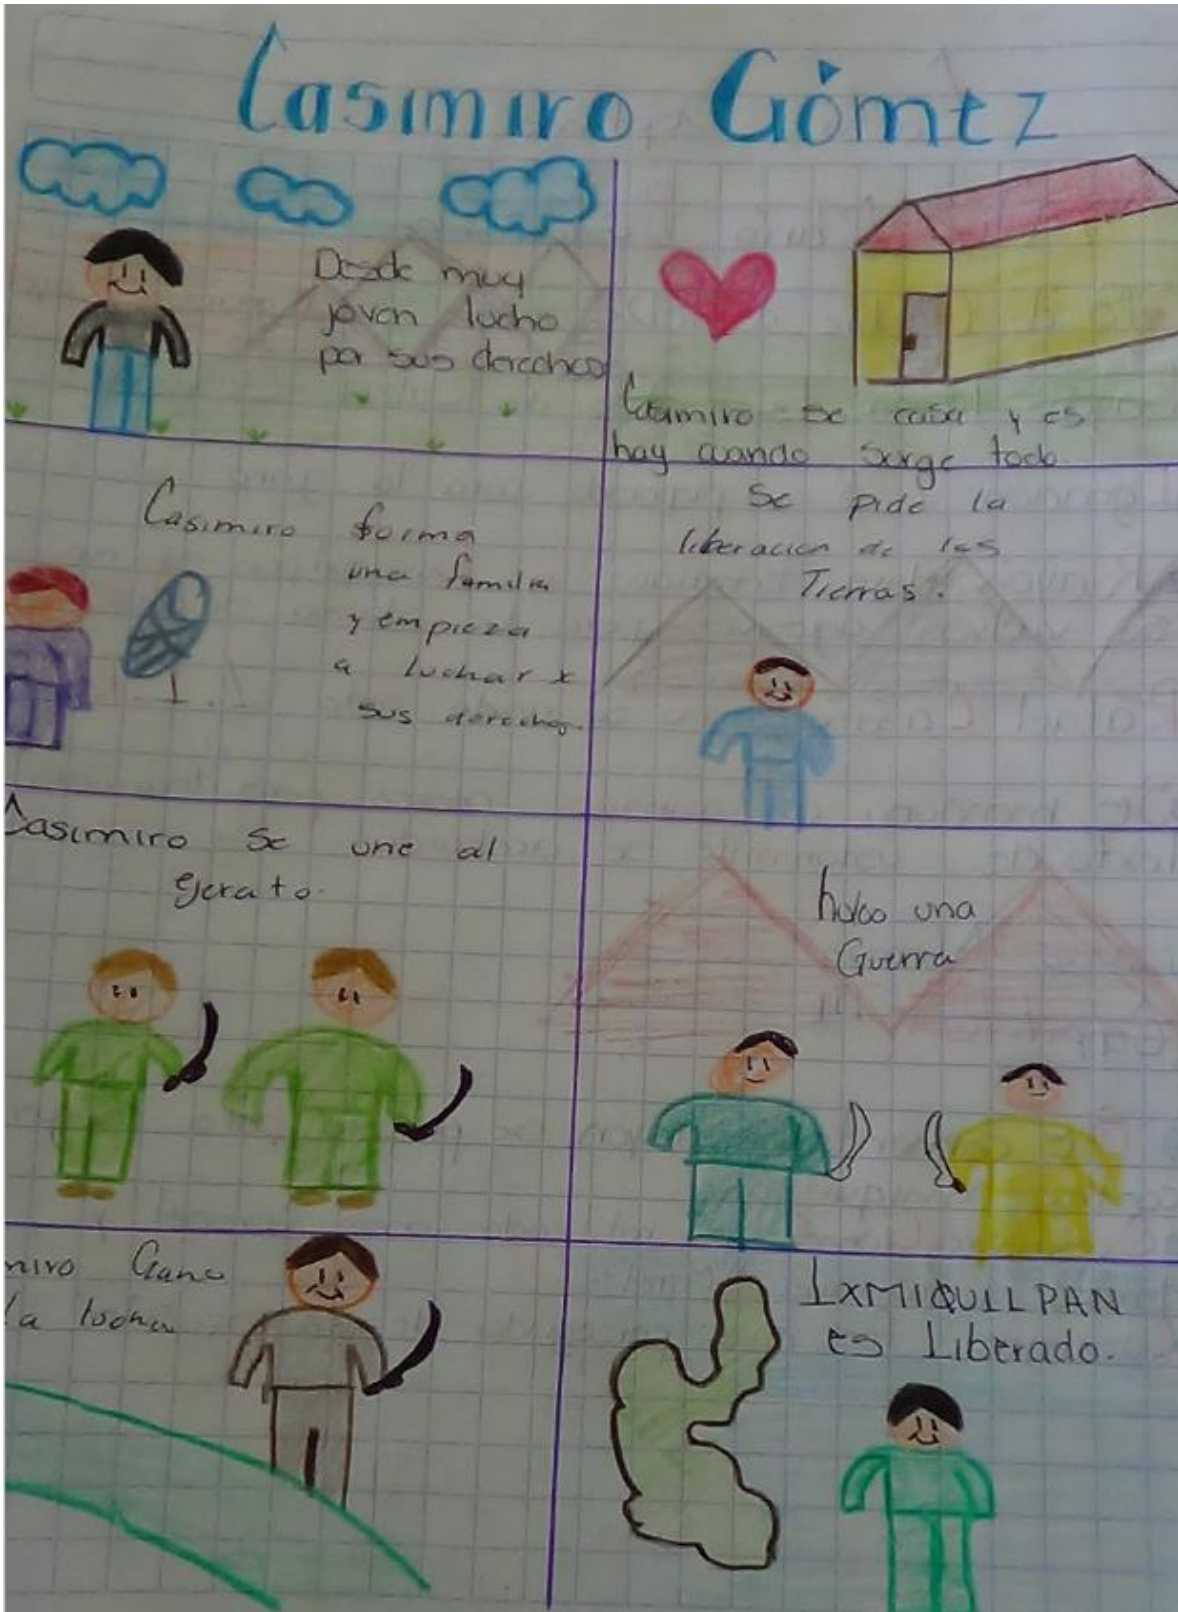 Casimiro Gómez
Desde muy
joven lucho
por sus derechos
Casimiro se casa y es
hay cuando surge todo.
Casimiro forma
una familia
y empieza
a luchar x
sus derechos.
Se pide la
liberacion de las
Tierras.
Casimiro se une al
Ejercito.
hubo una
Guerra
miro Gano
la lucha
IXMIQUILPAN
es Liberado.